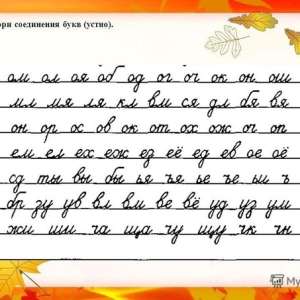 ори соединения букв (устно).
ом ол оя об од ог оч ок он ош
мл мя ля кл вм ся дл бя вя
он ор ос ов ок от ох ож оч оп
ем ел ех еж ез её ед ев ое оё
сд ты вы бы ья ъя ье ъе ьи ъ
бр зу ув вл вм ве вё уд уз ум
жи ши ча ща чу щу чк чн